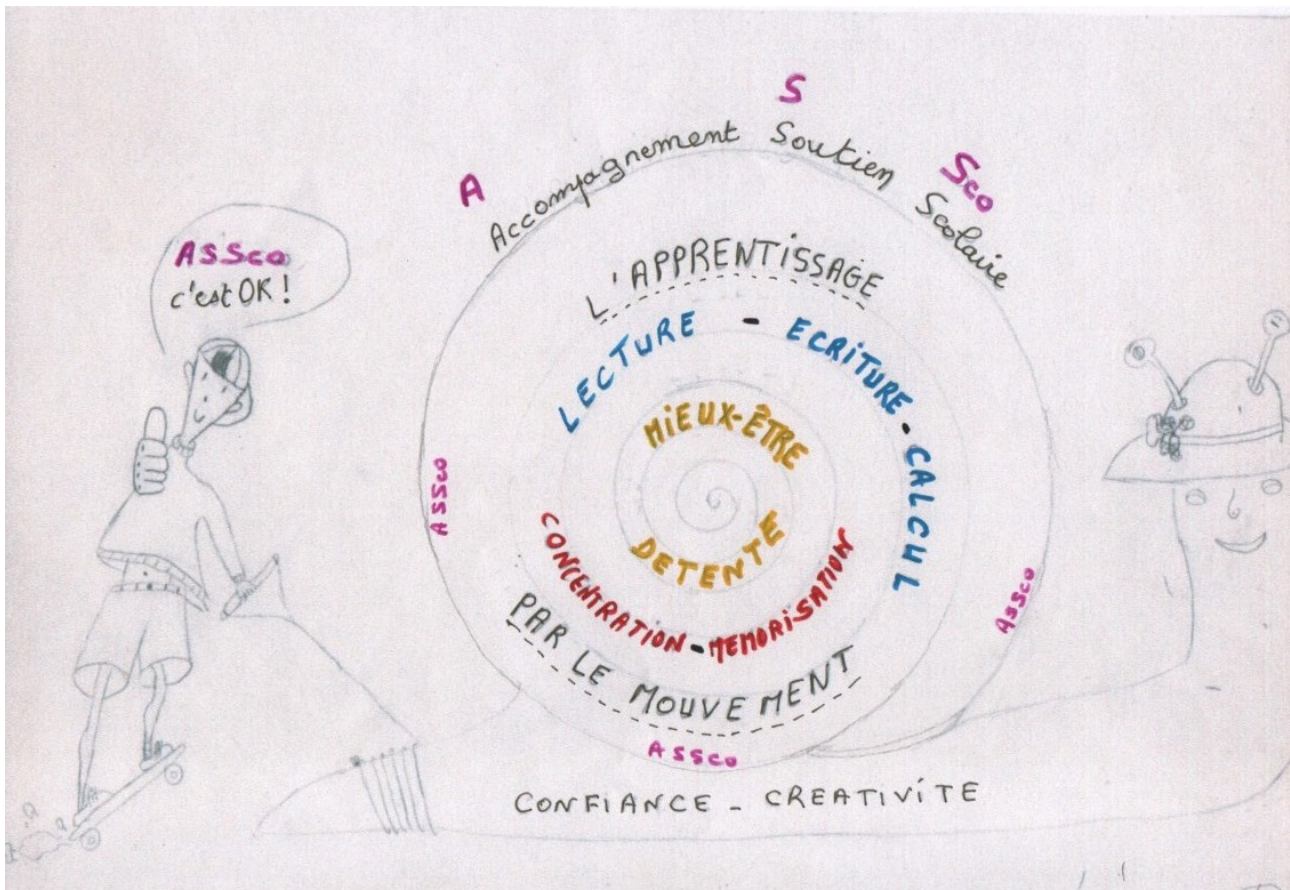 A S Sco
Accompagnement Soutien Scolaire
ASSco
c'est OK !
L'APPRENTISSAGE
LECTURE - ECRITURE - CALCUL
MIEUX-ÊTRE
DETENTE
CONCENTRATION - MEMORISATION
PAR LE MOUVEMENT
ASSco
ASSco
ASSco
CONFIANCE - CREATIVITE